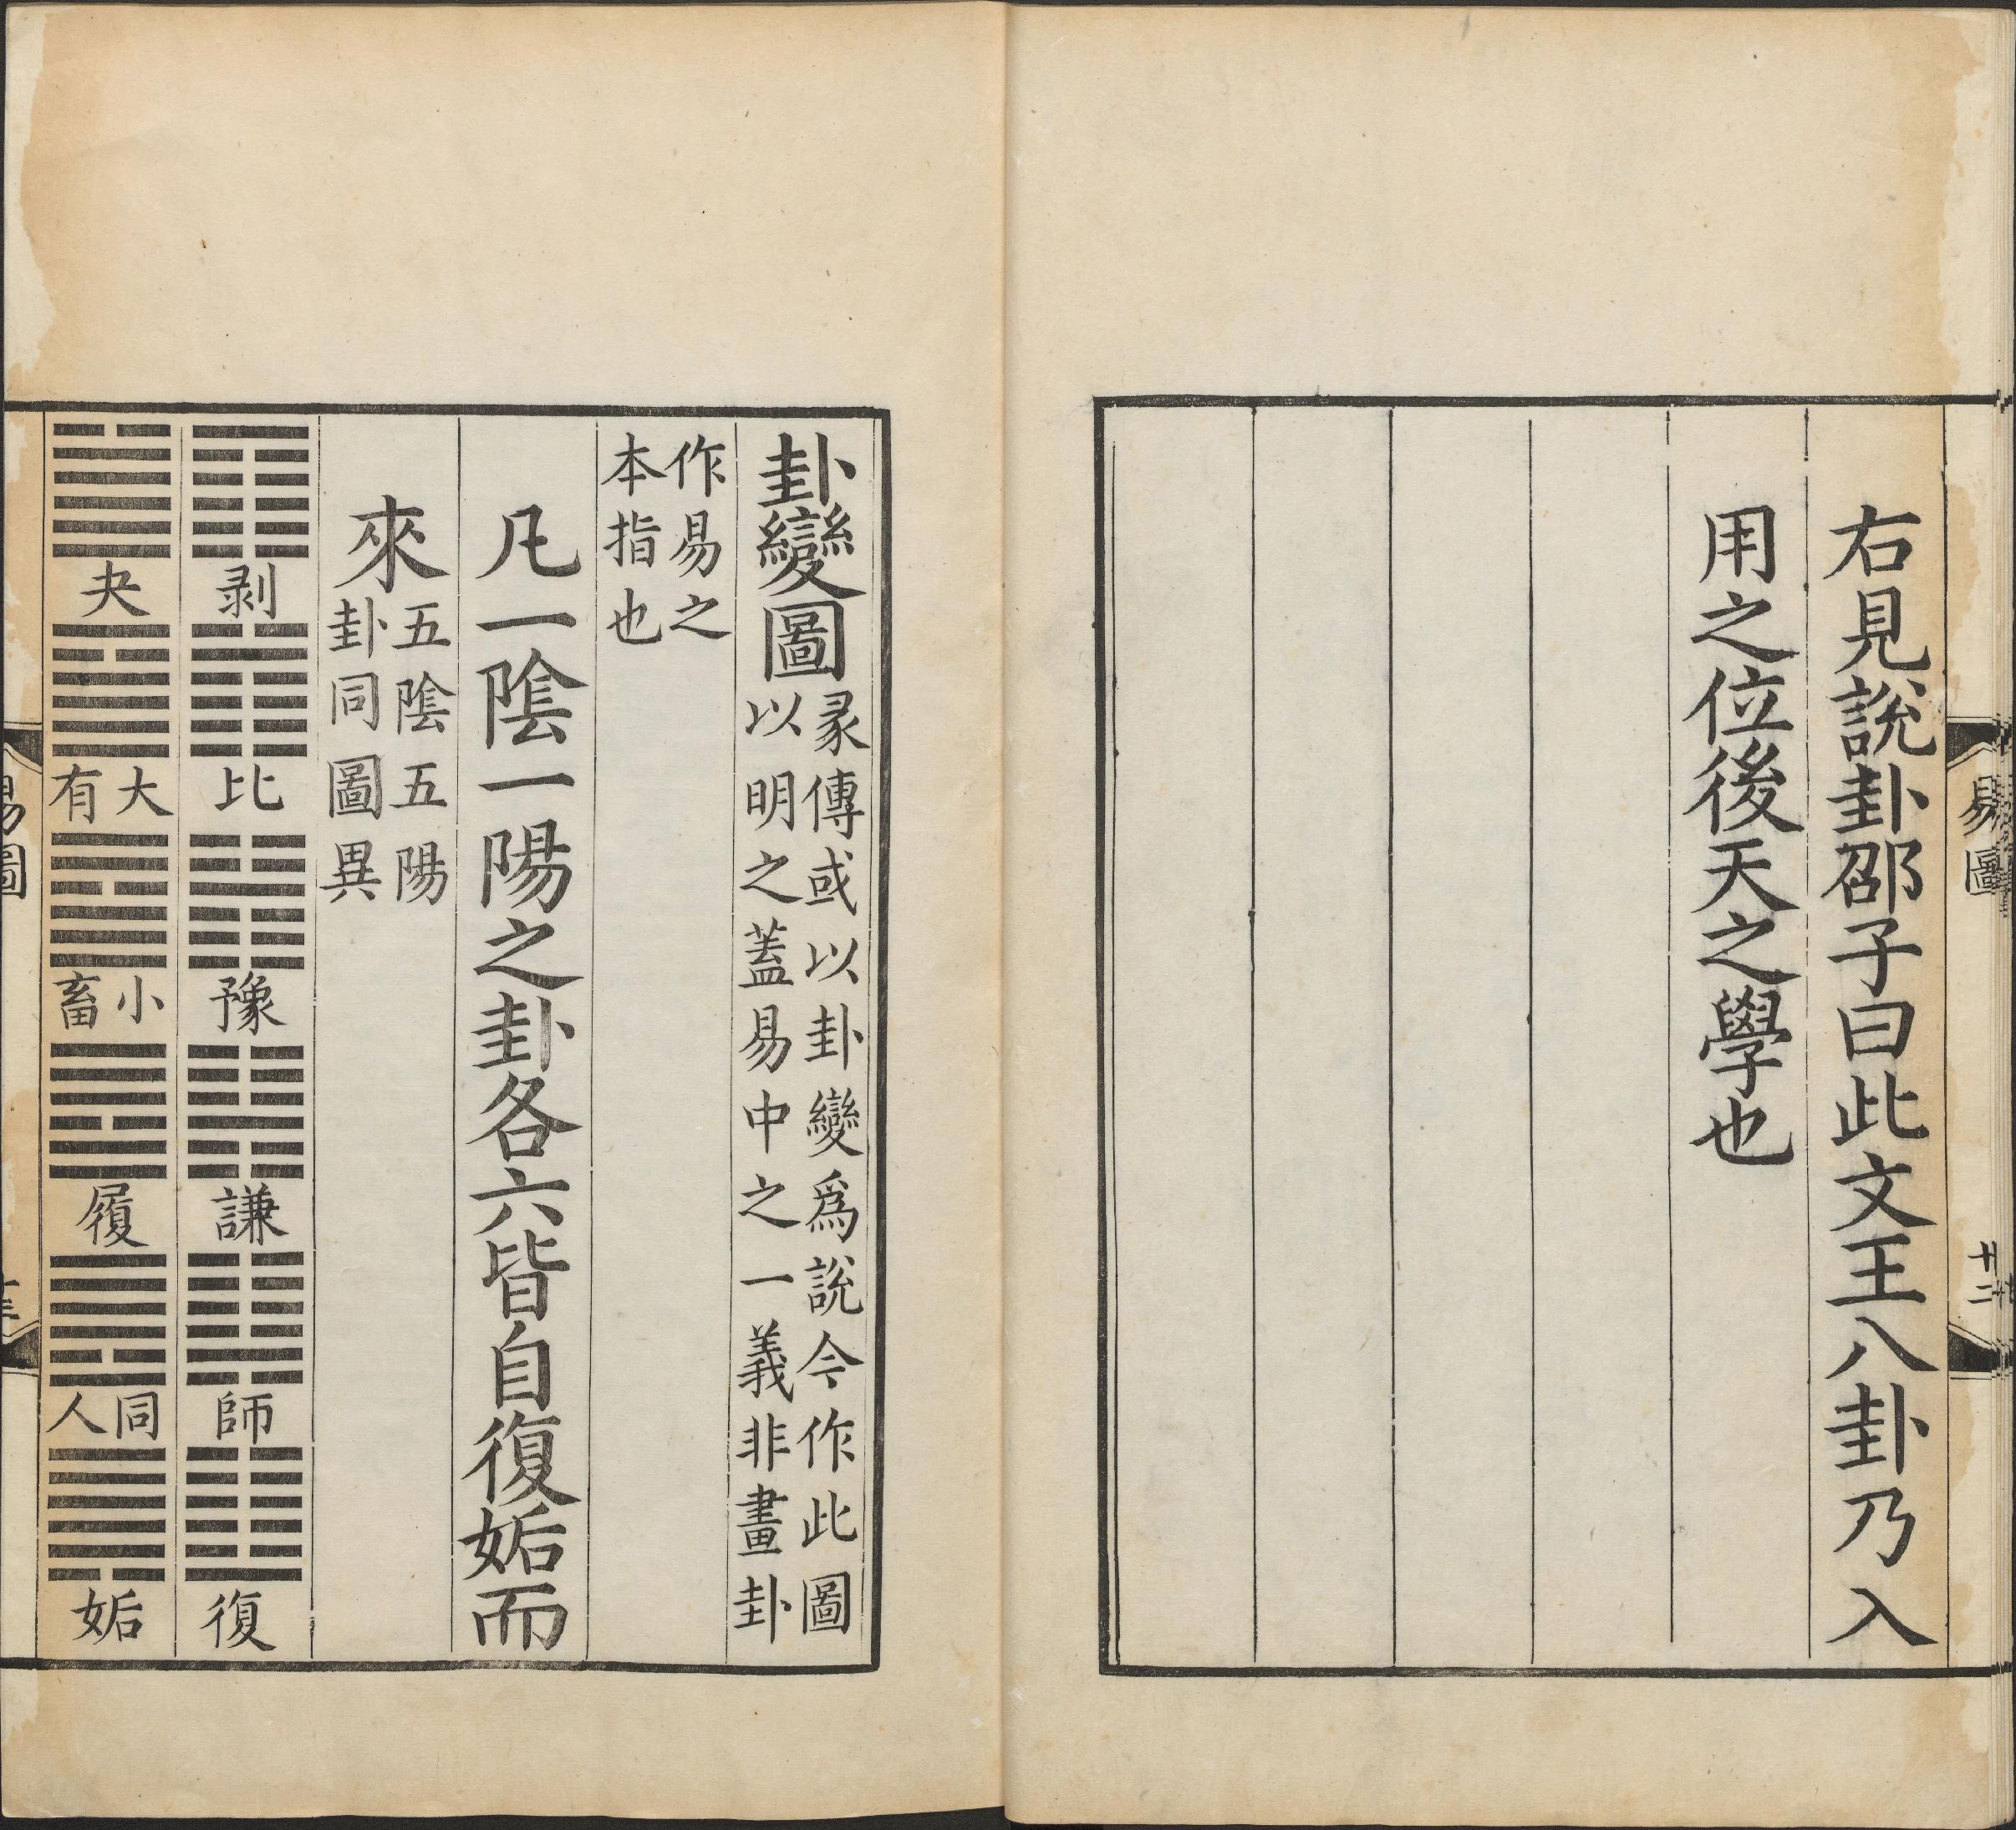 易圖
十二
右見說卦邵子曰此文王八卦乃入
用之位後天之學也
卦變圖
彖傳或以卦變爲說今作此圖
以明之蓋易中之一義非畫卦
作易之
本指也
凡一陰一陽之卦各六皆自復姤而
來
五陰五陽
卦同圖異
剥
比
豫
謙
師
復
夬
大有
小畜
履
同人
姤
易圖